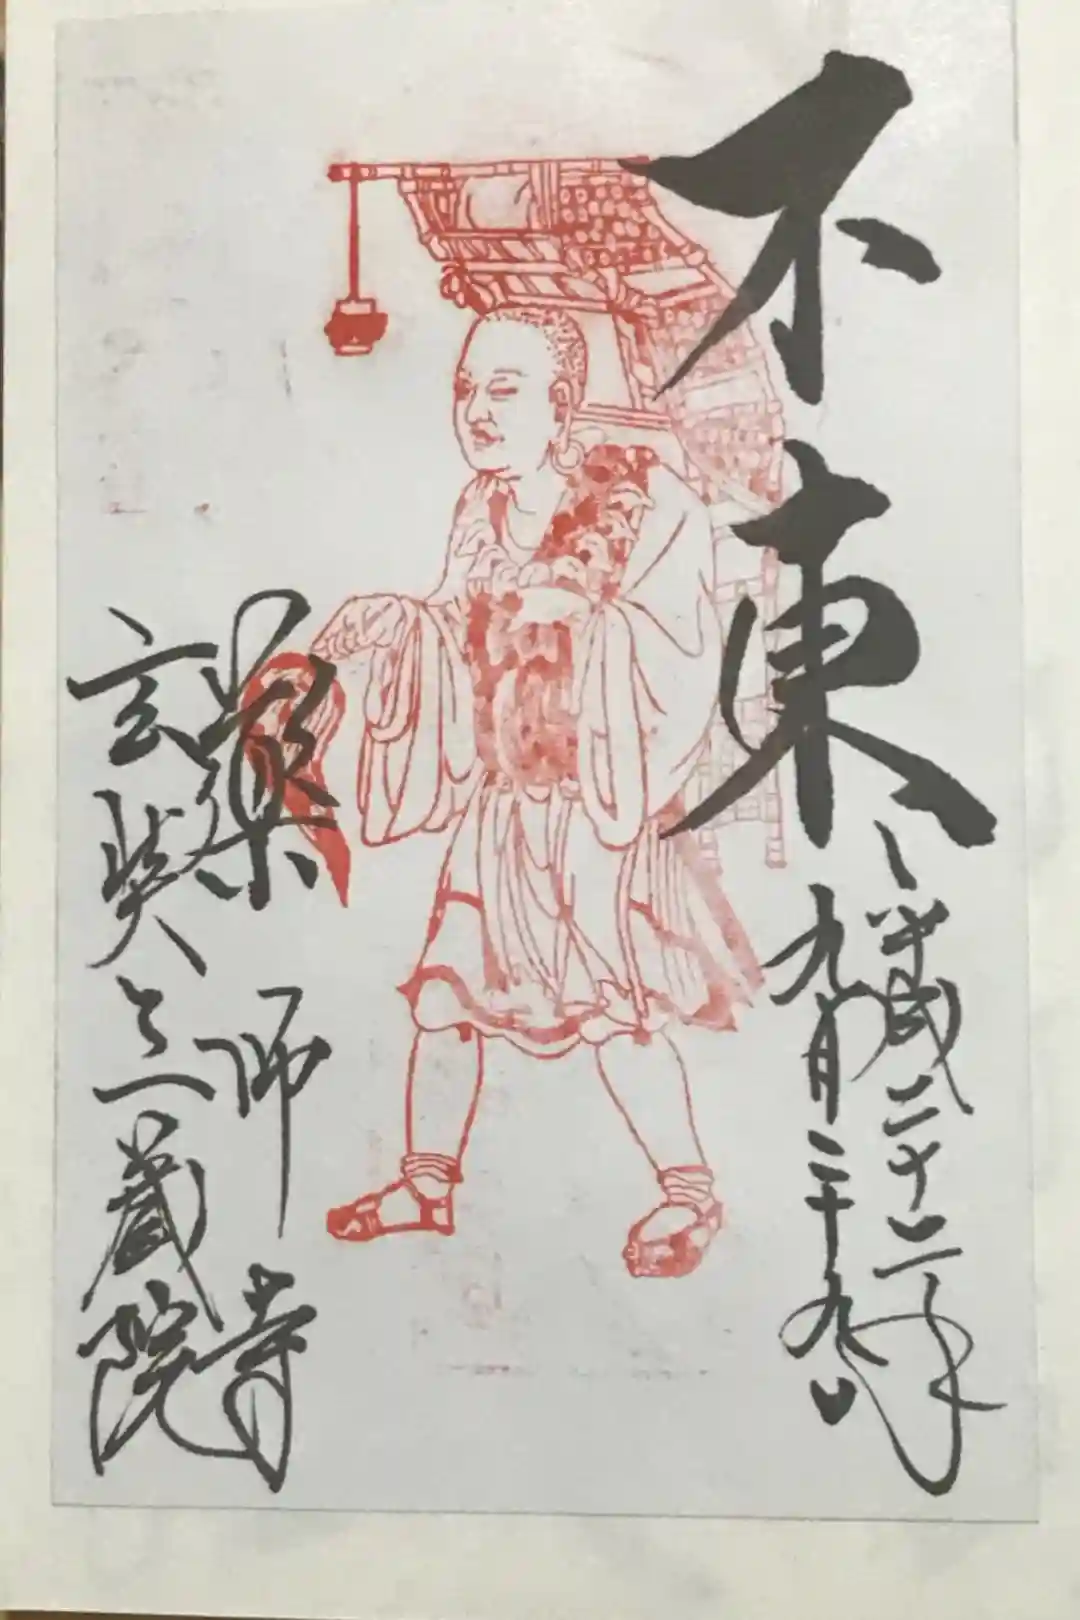 不東
平成二十二年
九月二十九日
薬師寺
玄奘三蔵院